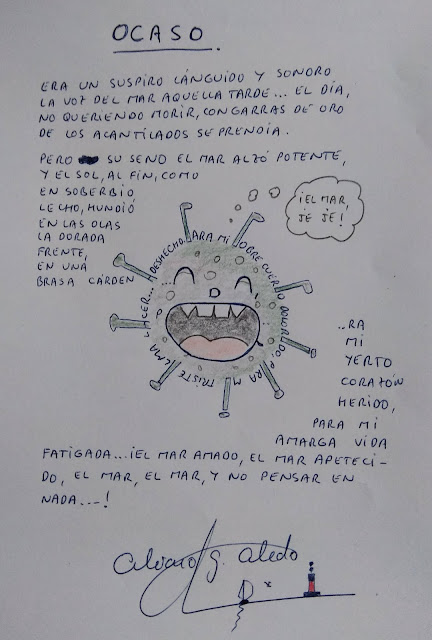 OCASO.
ERA UN SUSPIRO LÁNGUIDO Y SONORO
LA VOZ DEL MAR AQUELLA TARDE... EL DÍA,
NO QUERIENDO MORIR, CON GARRAS DE ORO
DE LOS ACANTILADOS SE PRENDIA.
PERO SU SENO EL MAR ALZÓ POTENTE,
Y EL SOL, AL FIN, COMO
EN SOBERBIO
LECHO, HUNDIÓ
EN LAS OLAS
LA DORADA
FRENTE,
EN UNA
BRASA CÁRDEN
A DESHECHO. PARA MI POBRE CUERPO DOLORIDO, PARA MI TRISTE ALMA LACER...
¡EL MAR,
JE JE!
..RA
MI
YERTO
CORAZÓN
HERIDO,
PARA MI
AMARGA VIDA
FATIGADA...¡EL MAR AMADO, EL MAR APETECI-
DO, EL MAR, EL MAR, Y NO PENSAR EN
NADA...!
alvaro g. aledo